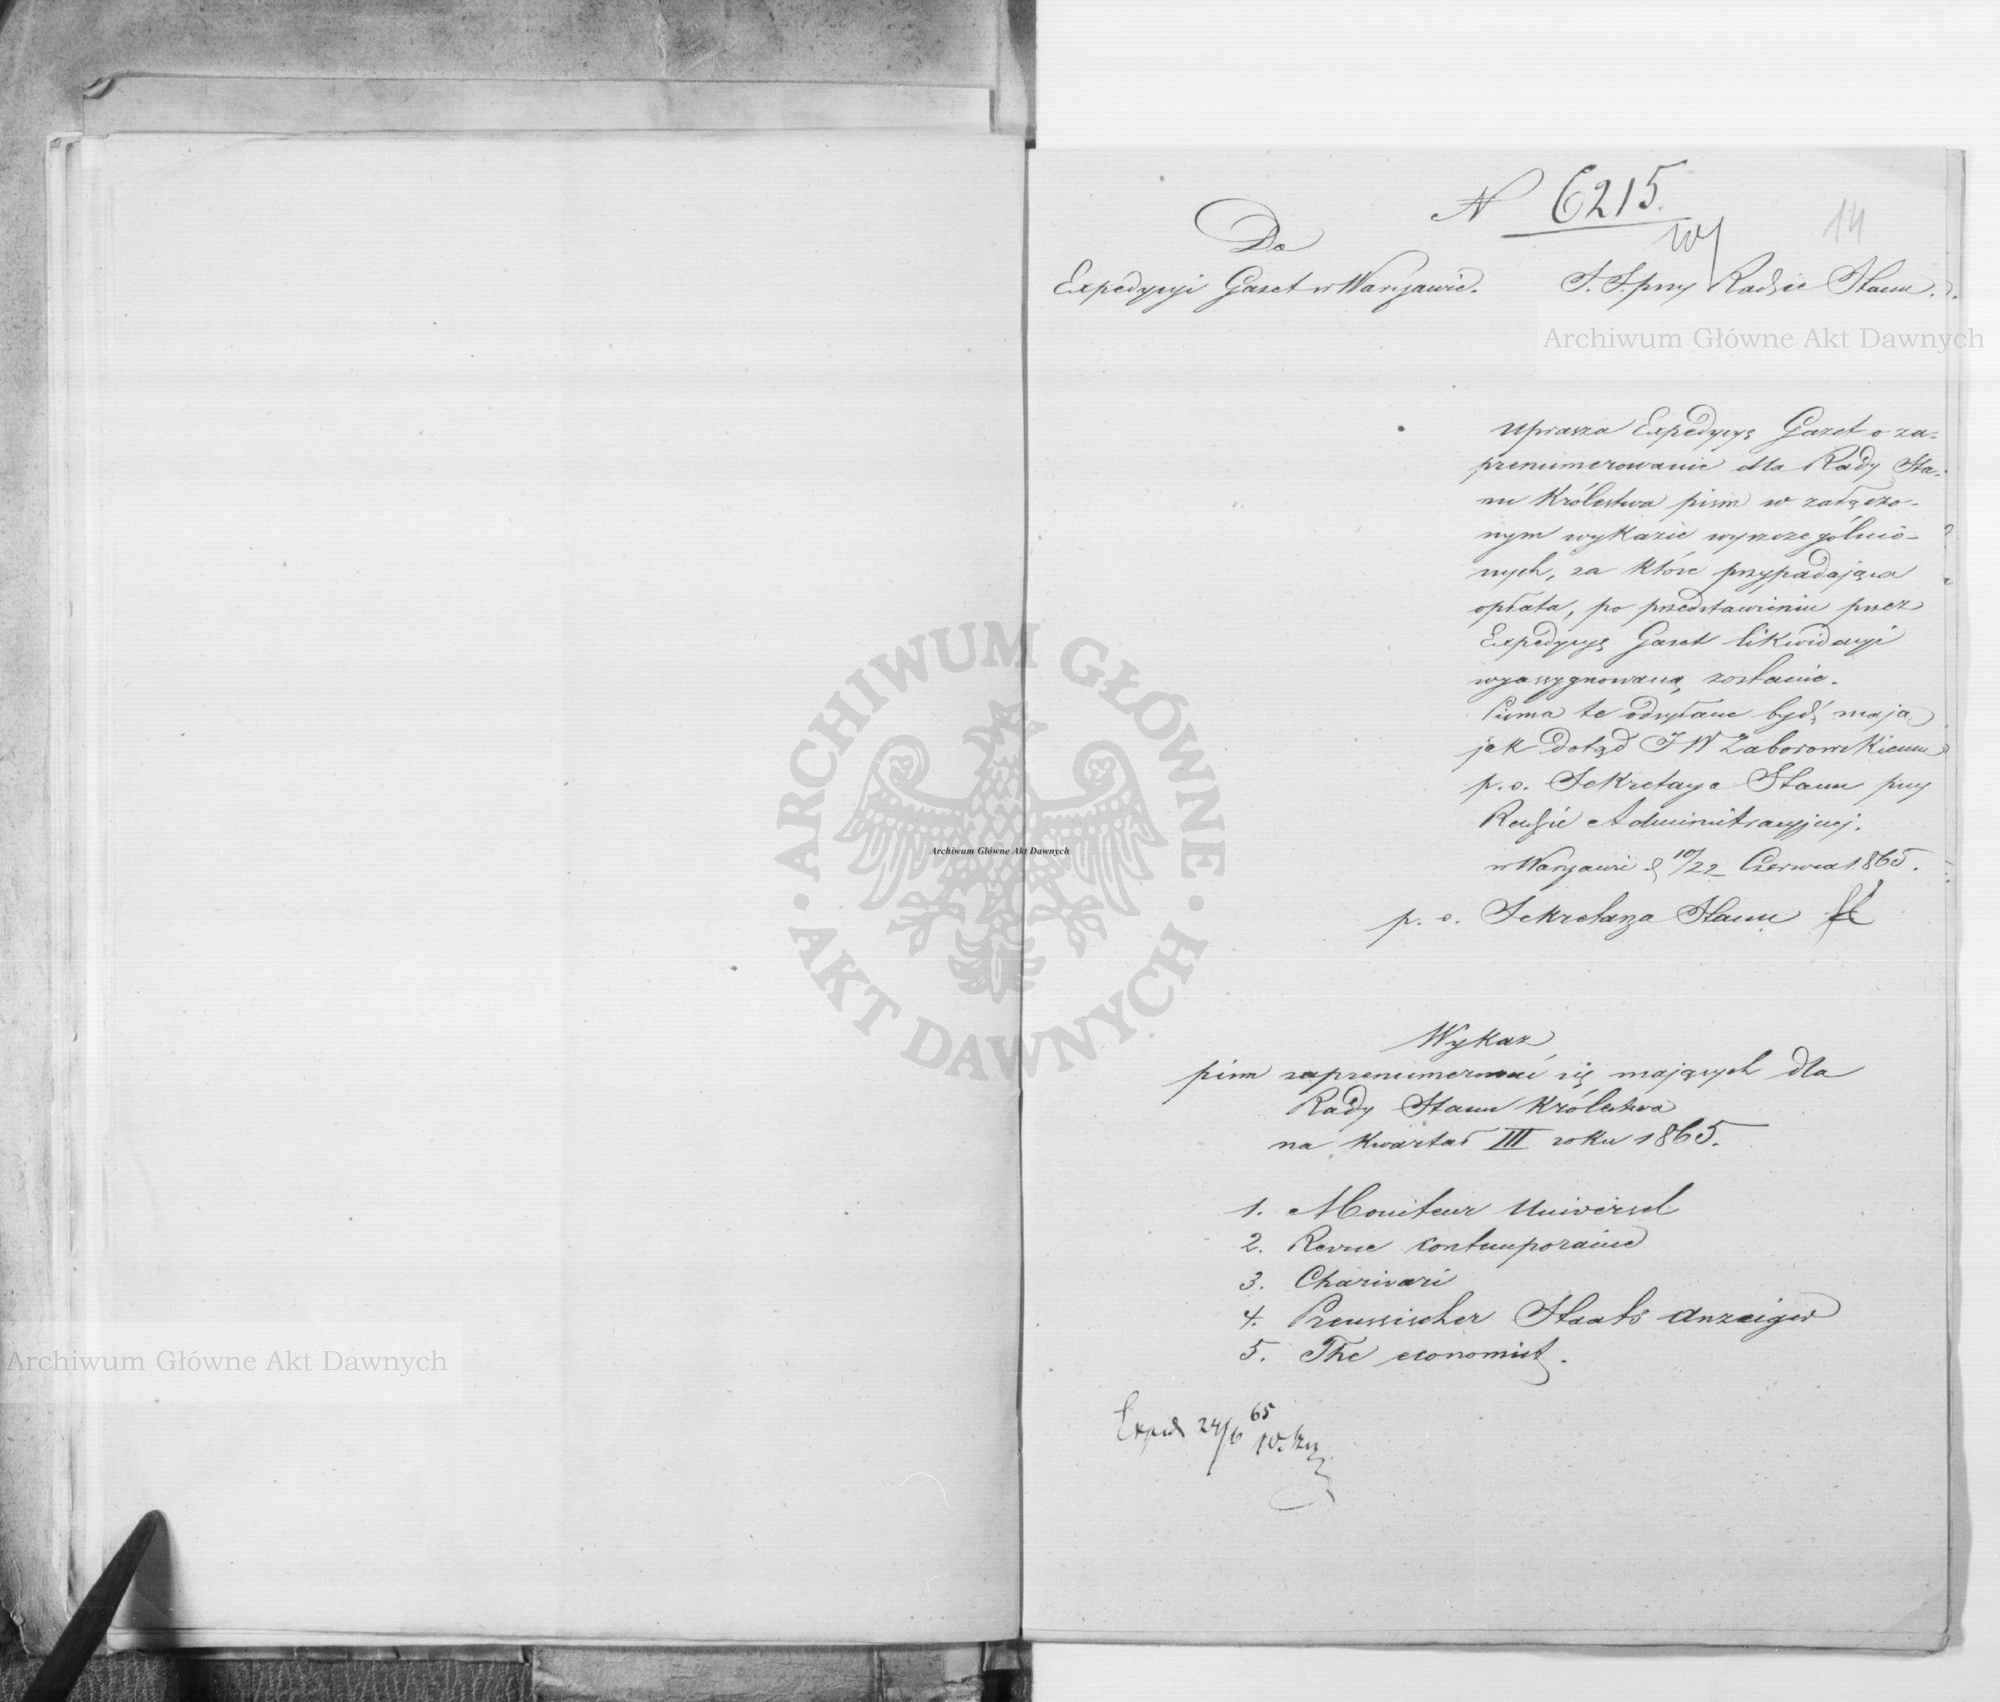 N 6215.
14
Do
Expedycyi Gazet w Warszawie.
S. S. przy Radzie Stanu.
Archiwum Główne Akt Dawnych
uprasza Expedycyę Gazet o za-
prenumerowanie dla Rady Sta-
nu Królestwa pism w załączo-
nym wykazie wyszczególnio-
nych, za które przypadająca
opłata, po przedstawieniu przez
Expedycyę Gazet likwidacyi
wyassygnowaną zostanie.
Pisma te odsyłane być mają
jak dotąd JW Zaborowskiemu
p. o. Sekretarza Stanu przy
Radzie Administracyjnej.
w Warszawie d 10/22 Czerwca 1865.
p. o. Sekretarza Stanu
ARCHIWUM GŁÓWNE AKT DAWNYCH
Archiwum Główne Akt Dawnych
Wykaz
pism zaprenumerować się mających dla
Rady Stanu Królestwa
na kwartał III roku 1865.
1. Moniteur Universel
2. Revue contemporaine
3. Charivari
4. Preussischer Staats Anzeiger
5. The economist.
Archiwum Główne Akt Dawnych
Exped 24/6 65